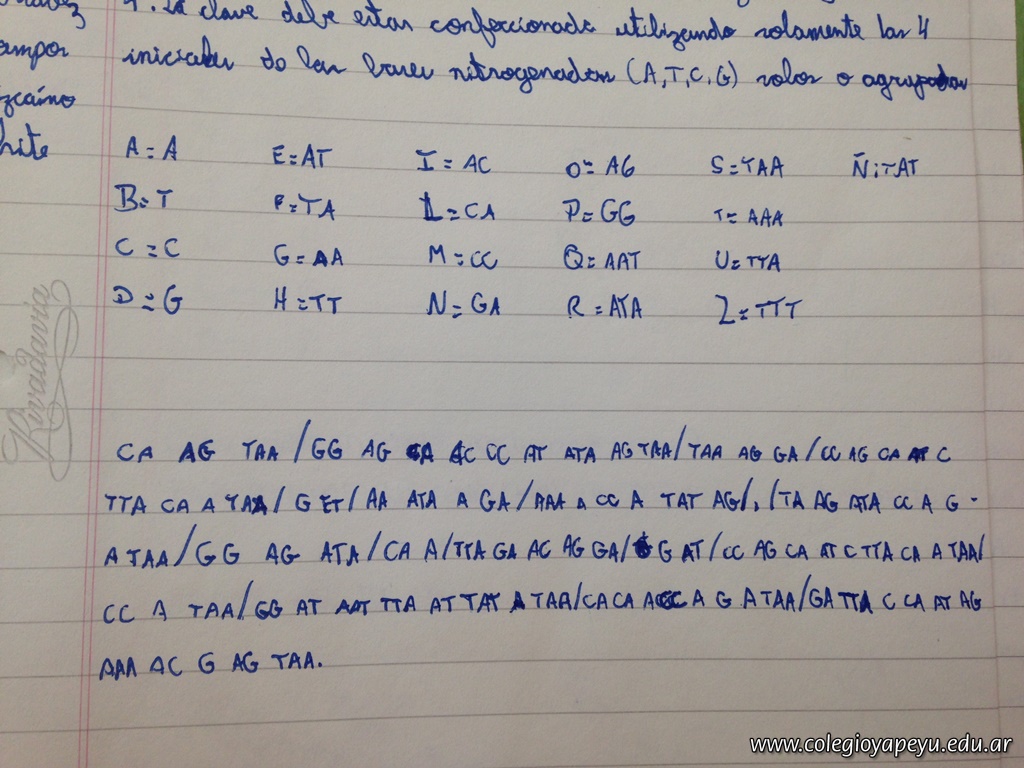 1. La clave debe estar confeccionada utilizando solamente las 4
iniciales de las bases nitrogenadas (A,T,C,G) solas o agrupadas
A=A E=AT I=AC O=AG S=TAA Ñ:TAT
B=T F=TA L=CA P=GG T=AAA
C=C G=AA M=CC Q=AAT U=TTA
D=G H=TT N=GA R=ATA Z=TTT
CA AG TAA/GG AG CA AC CC AT ATA AG TAA/TAA AG GA/CC AG CA AT C
TTA CA A TAA/G ET/AA ATA A GA/AAA A CC A TAT AG/,/TA AG ATA CC A G-
A TAA/GG AG ATA/CA A/TTA GA AC AG GA/G AT/CC AG CA AT C TTA CA A TAA/
CC A TAA/GG AT AAT TTA AT TAT A TAA/CA CA A G A TAA/GA TTA C CA AT AG
AAA AC G AG TAA.
Rivadavia
www.colegioyapeyu.edu.ar